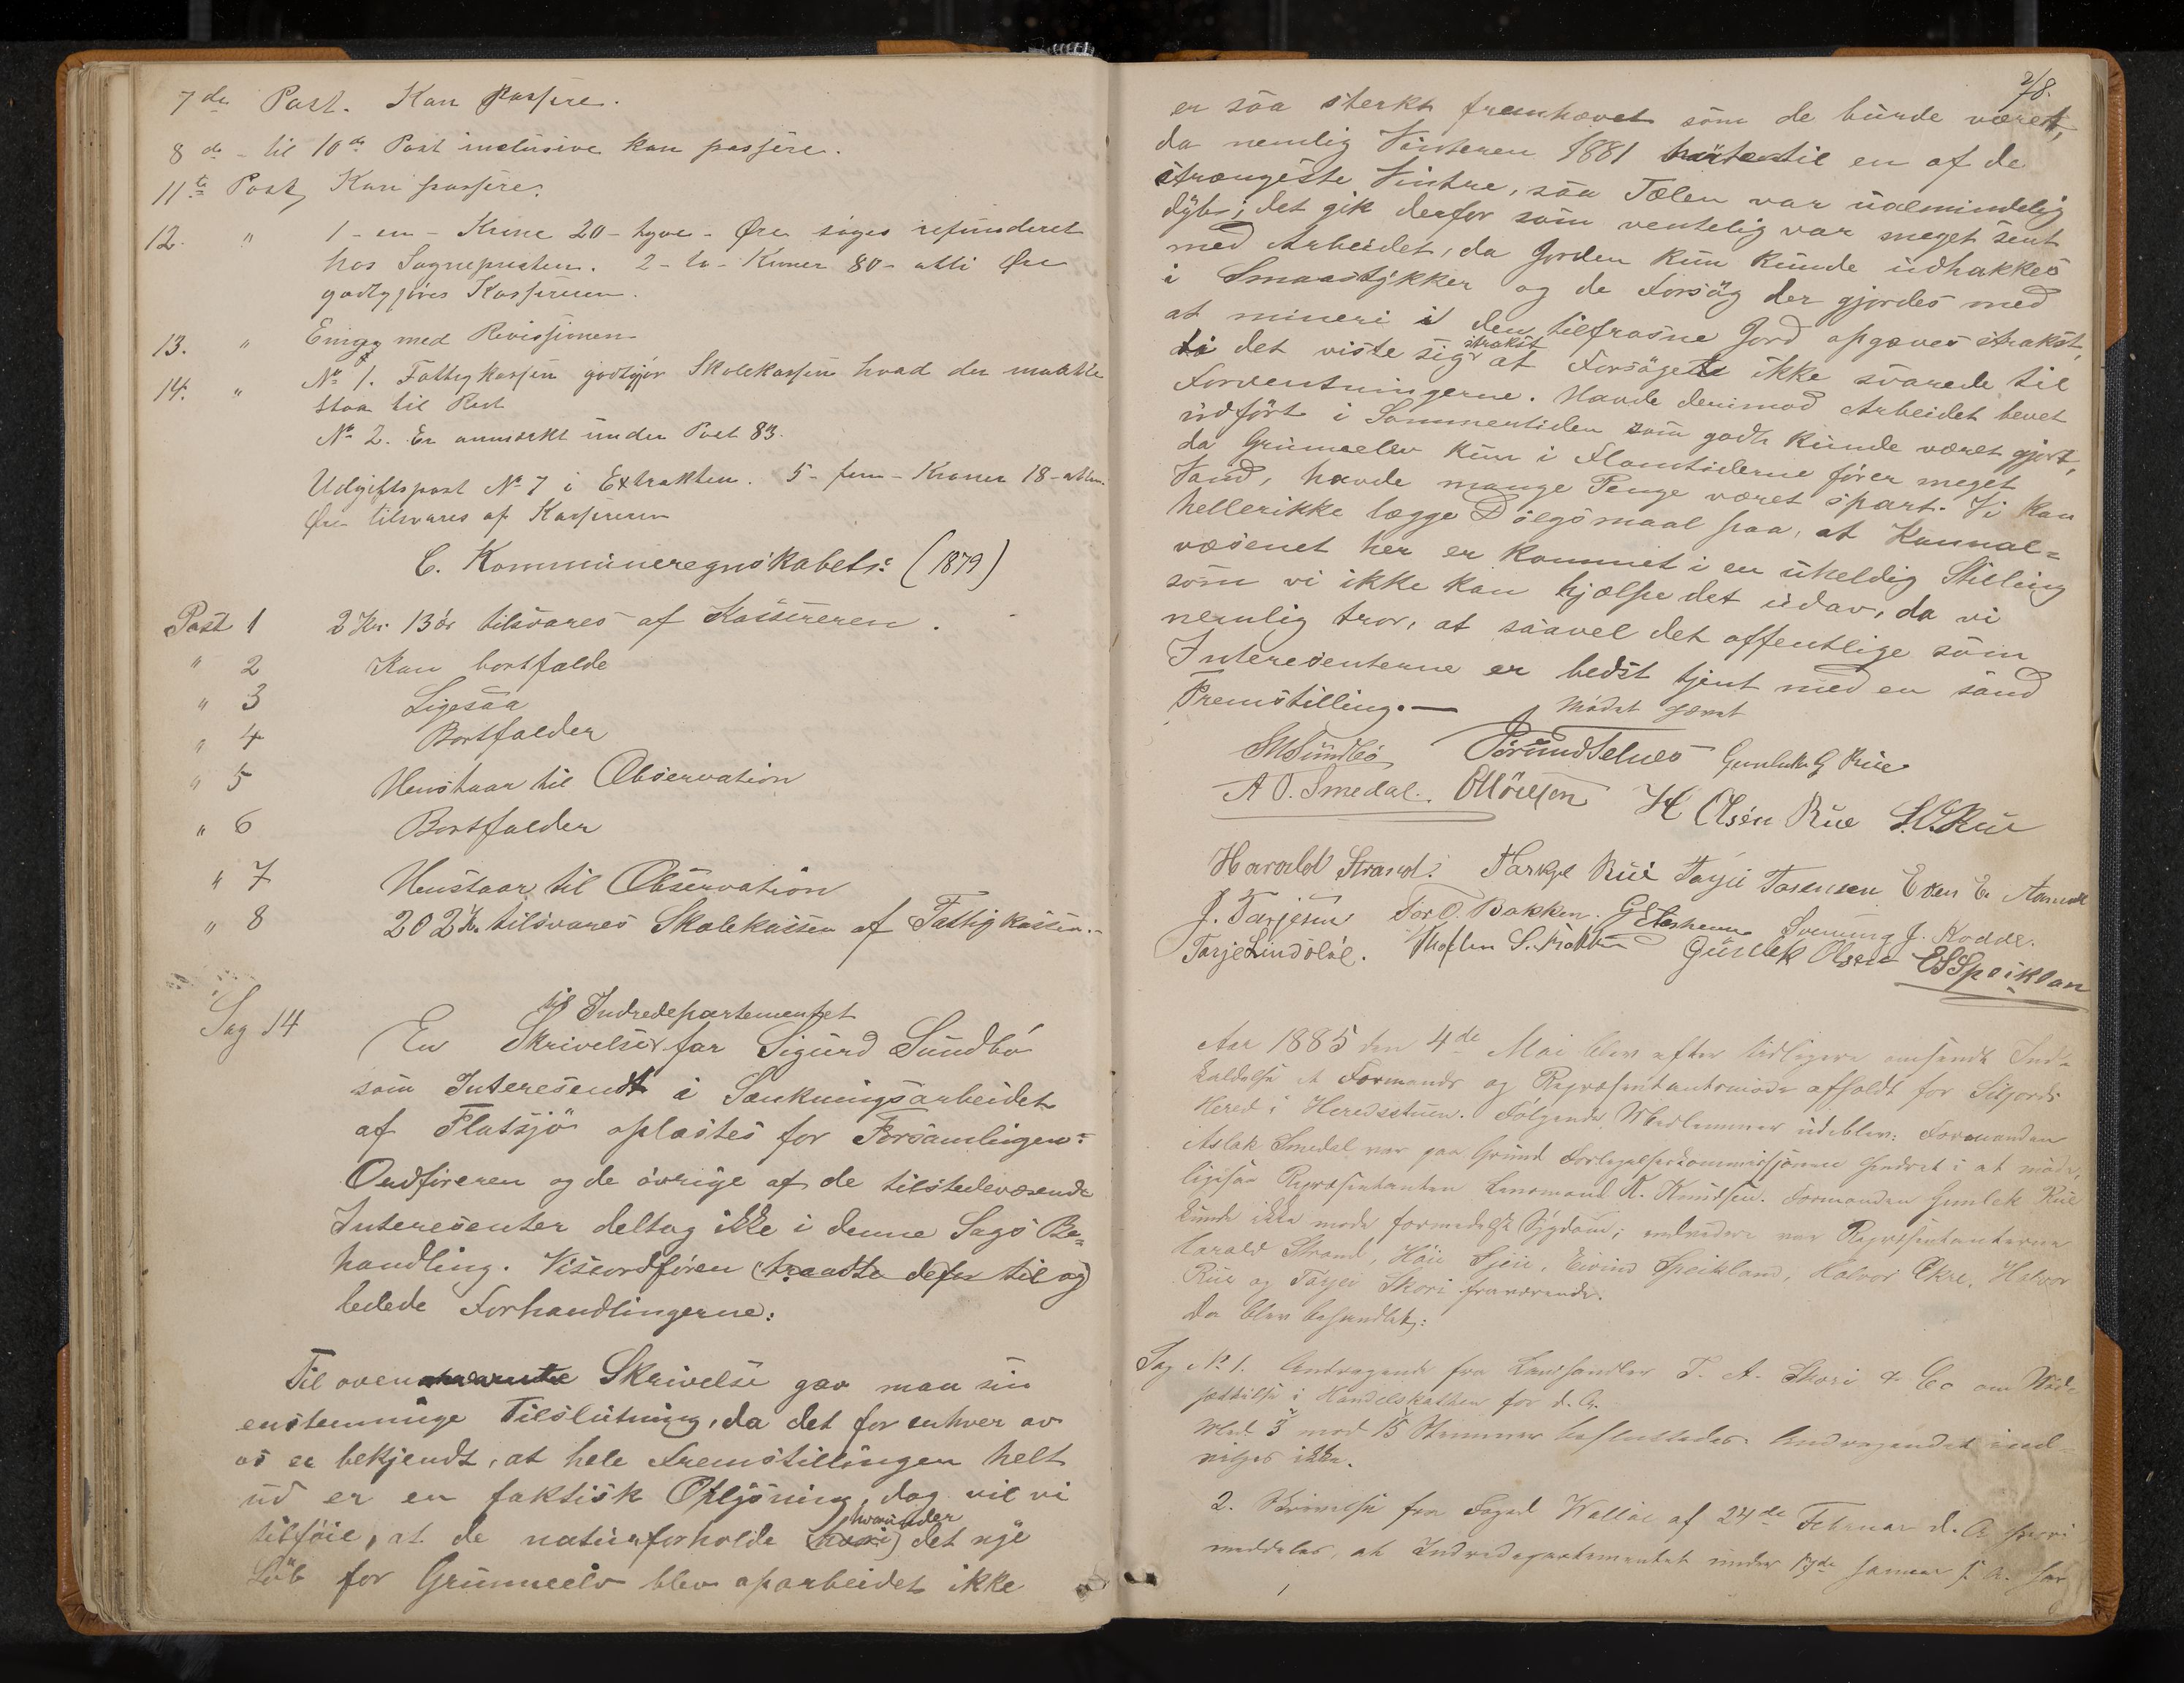 7de Post. Kan passere.
8de - til 10de Post inclusive kan passere.
11te Post, Kan passere.
12. " 1 - en - Krone 20 - tyve - Øre søges refunderet
hos Sognepresten. 2 - to - Kroner 80 - otti Øre
godtgjøres Kassereren.
13. " Enig med Revissionen
14. " No 1. Fattigkassen godtgjør Skolekassen hvad der maatte
staa til Rest
No 2. Er anmærkt under Post 83.
Udgiftspost No 7 i Extrakten. 5 - fem - Kroner 18 - atten
Øre tilsvares af Kassereren
C. Kommuneregnskabets: (1879)
Post 1 2 Kr. 13 ør tilsvares af Kassereren.
" 2 Kan bortfalde
" 3 Ligesaa
" 4 Bortfalder
" 5 Henstaar til Observation
" 6 Bortfalder
" 7 Henstaar til Observation
" 8 202 Kr. tilsvares Skolekassen af Fattigkassen.
til Indredepartementet
Sag 14 En Skrivelse far Sigurd Sundbö
som Interesendt i Sænkningsarbeidet
af Flatsjö oplæstes for Forsamlingen:
Ordføreren og de øvrige af de tilstedeværende
Interesenter deltog ikke i denne Sags Be=
handling. Viseordføren (traadte defor til og)
ledede Forhandlingerne:
Til oven Skrivelse gav man sin
enstemmige Tilslutning, da det for enhver av
os er bekjendt, at hele Fremstillingen helt
ud er en faktisk Oplysning, dog vil vi
hvorunder
tilføie, at de naturforholde (hvori) det nye
Løb for Grunneelv blev oparbeidet ikke
2/8.
er saa sterkt fremhævet som de burde været,
da nemlig Vinteren 1881 hørte til en af de
strængeste Vintre, saa Tælen var ualmindelig
dyb; det gik derfor som ventelig var meget sent
med Arbeidet, da Jorden kun kunde udhakkes
i Smaastykker og de Forsøg der gjordes med
at mineri i den tilfrosne Jord opgaves strakst,
strakst
ti det viste sig at Forsøgete ikke svarede til
Forventningerne. Havde derimod Arbeidet bevet
udført i Sommertiden som godt kunde været gjort,
da Grunneelv kun i Flomtiderne fører meget
Vand, havde mange Penge været spart. Vi kan
hellerikke lægge Dølgsmaal paa, at Kannal=
væsenet her er kommet i en uheldig Stilling
som vi ikke kan hjælpe det udav, da vi
nemlig tror, at saavel det offentlige som
Interesenterne er bedst tjent med en sand
Fremstilling. — Mødet hævet
SSundbö Gunleik G Rue
A O. Smedal. H Olsen Rue S.O.Rue
Harald Strand. Tarkjel Rue Tarjei Torsensen Even E.
J. Tarjesen Tor O. Bakken. Svenung J. Rodde.
Tarje Lindslöl. Gunlek Olsen ESSpeiklan
Aar 1885 den 4de Mai blev efter tidligere omsendt Ind=
kaldelse et Formands og Repræsentantsmøde afholdt for Siljords
Hered i Heredsstuen. Følgende Medlemmer udeblev: Formanden
Aslak Smedal var paa Grund Forligelseskommissionen hindret i at møde,
ligesaa Repræsentanten Lensmand K. Knudsen. Formanden Gunlek Rue
kunde ikke møde formedelst Sygdom; endvidere var Repræsentanterne
Harald Strand, Høie Sjeie, Eivind Speikland, Halvor Økre, Halvor
Rue og Tarjei Skori fraværende.
Da blev behandlet:
Sag No 1. Andragende fra Landhandler T. A. Skori & Co om Ned=
sættelse i Handelsskatten for d. A.
Med 3 mod 15 Stemmer besluttedes: Andragendet ind=
vilges ikke.
2. Skrivelse fra Foged Walløe af 24de Februar d. A. hvori
meddeles, at Indredepartementet under 17de Januar s. A. har